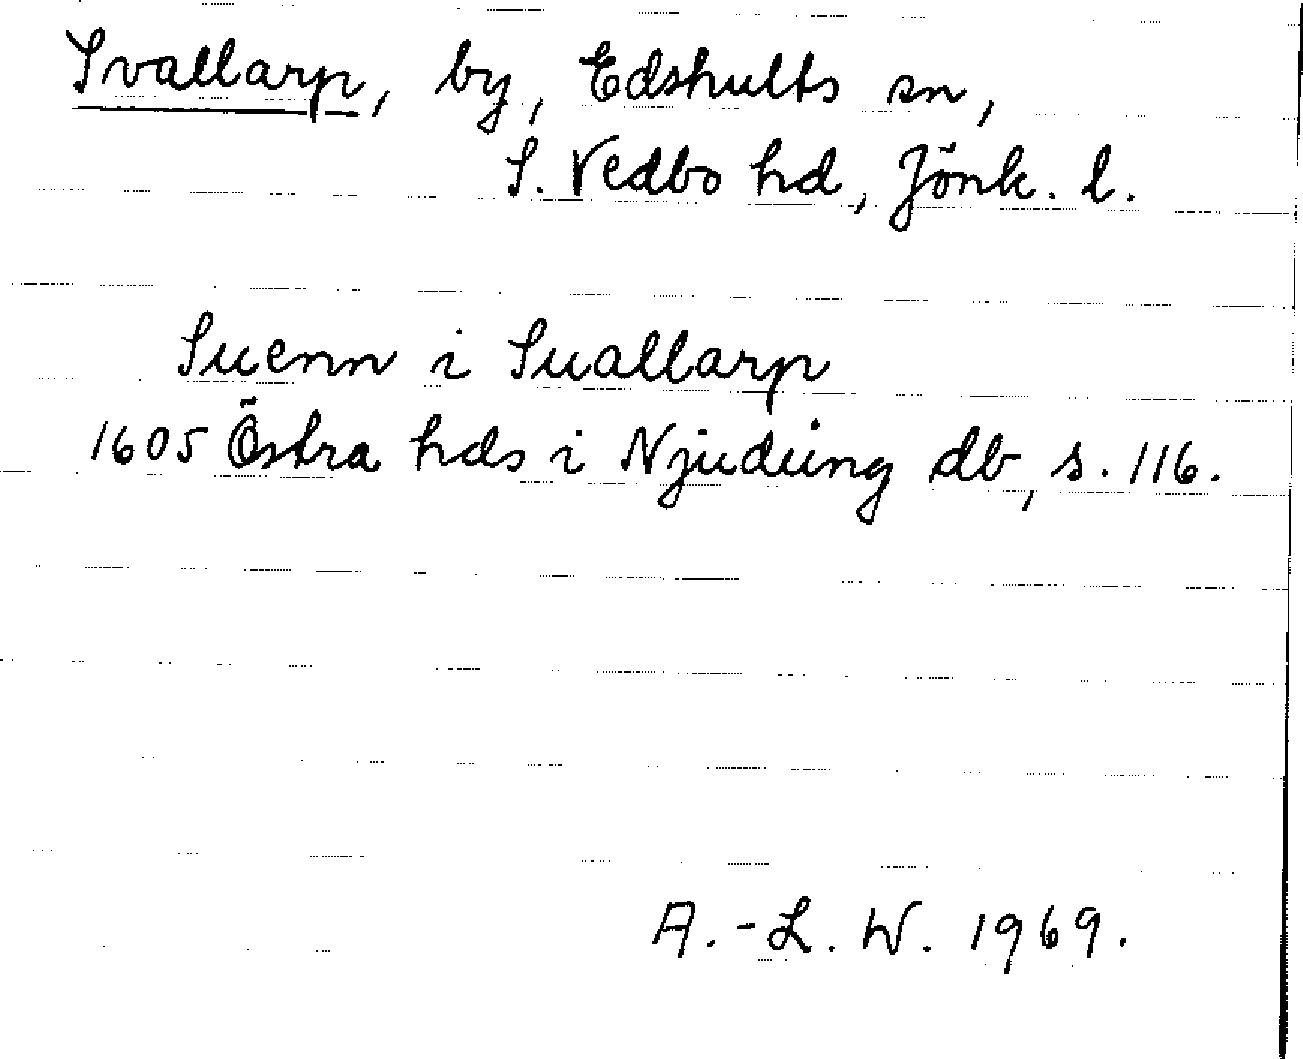 Svallarp, by, Edshults sn,
S. Vedbo hd, Jönk. l.
Suenn i Suallarp
1605 Östra hds i Njudung db, s. 116.
A.-L. W. 1969.